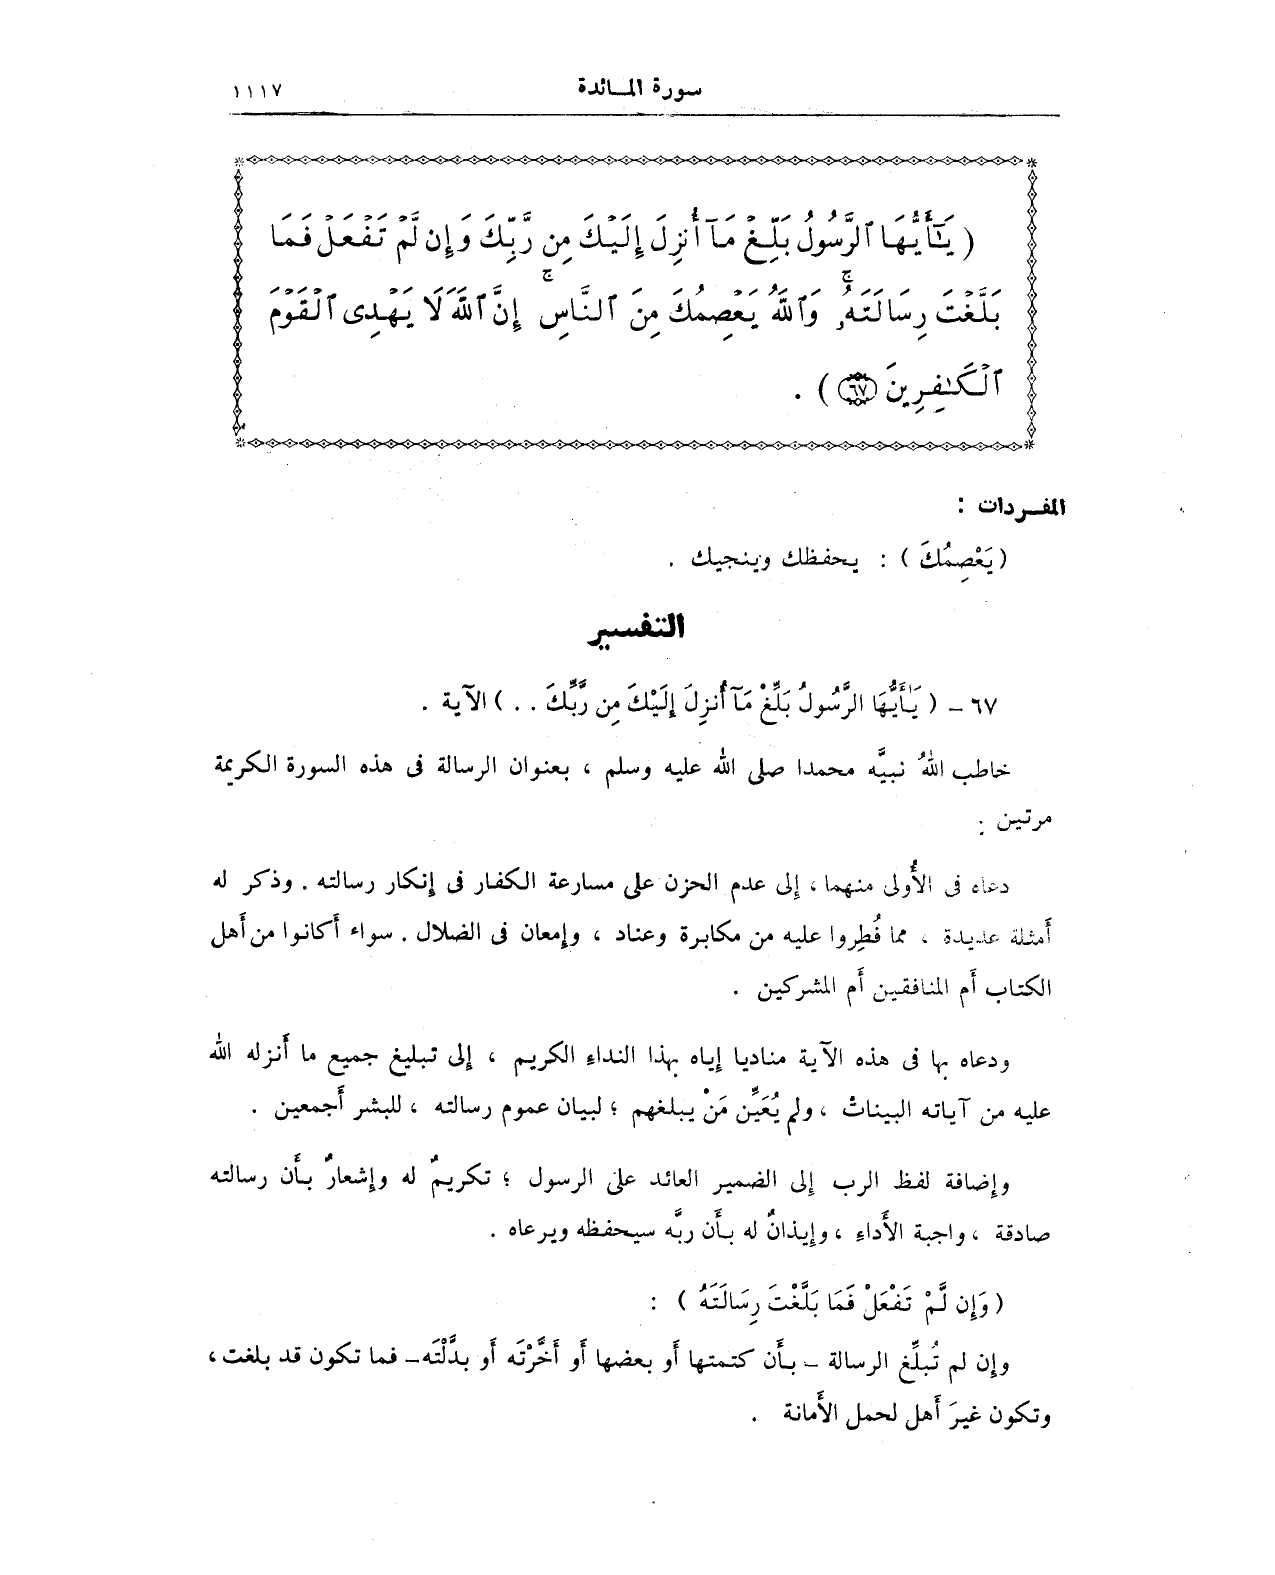 سورة المائدة ١١١٧
( يَٰٓأَيُّهَا ٱلرَّسُولُ بَلِّغۡ مَآ أُنزِلَ إِلَيۡكَ مِن رَّبِّكَ وَإِن لَّمۡ تَفۡعَلۡ فَمَا
بَلَّغۡتَ رِسَالَتَهُۥۚ وَٱللَّهُ يَعۡصِمُكَ مِنَ ٱلنَّاسِۚ إِنَّ ٱللَّهَ لَا يَهۡدِى ٱلۡقَوۡمَ
ٱلۡكَٰفِرِينَ ٦٧ ) .
المفردات :
( يَعْصِمُكَ ) : يحفظك وينجيك .
التفسير
٦٧ – ( يَٰأَيُّهَا الرَّسُولُ بَلِّغْ مَآ أُنزِلَ إِلَيْكَ مِن رَّبِّكَ . . ) الآية .
خاطب اللهُ نبيَّه محمدا صلى الله عليه وسلم ، بعنوان الرسالة فى هذه السورة الكريمة
مرتين :
دعاه فى الأُولى منهما ، إلى عدم الحزن على مسارعة الكفار فى إنكار رسالته . وذكر له
أمثلة عديدة ، مما فُطِروا عليه من مكابرة وعناد ، وإمعان فى الضلال . سواء أكانوا من أهل
الكتاب أم المنافقين أم المشركين .
ودعاه بها فى هذه الآية مناديا إياه بهذا النداء الكريم ، إلى تبليغ جميع ما أنزله الله
عليه من آياته البينات ، ولم يُعَيِّن مَنْ يبلغهم ؛ لبيان عموم رسالته ، للبشر أجمعين .
وإضافة لفظ الرب إلى الضمير العائد على الرسول ؛ تكريمٌ له وإشعارٌ بأن رسالته
صادقة ، واجبة الأداء ، وإيذانٌ له بأن ربَّه سيحفظه ويرعاه .
( وَإِن لَّمْ تَفْعَلْ فَمَا بَلَّغْتَ رِسَالَتَهُ ) :
وإن لم تُبلِّغ الرسالة – بأن كتمتها أو بعضها أو أخَّرْتَه أو بدَّلْتَه – فما تكون قد بلغت ،
وتكون غيرَ أهل لحمل الأمانة .